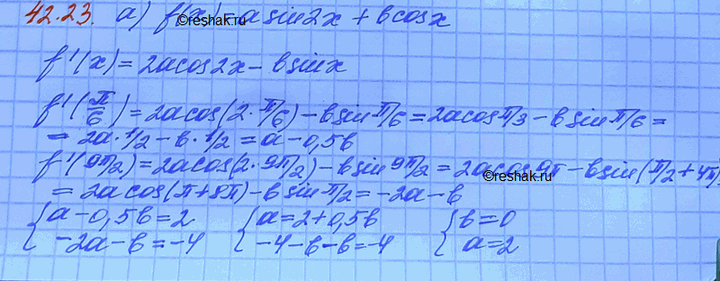 42.23. а) f(x) = a sin2x + b cosx
©reshak.ru
f'(x) = 2a cos2x - b sinx
f'(π/6) = 2a cos(2·π/6) - b sin π/6 = 2a cos π/3 - b sin π/6 =
= 2a·1/2 - b·1/2 = a - 0,5b
f'(9π/2) = 2a cos(2·9π/2) - b sin 9π/2 = 2a cos 9π - b sin(π/2 + 4π)
©reshak.ru
= 2a cos(π + 8π) - b sin π/2 = -2a - b
{ a - 0,5b = 2 { a = 2 + 0,5b { b = 0
-2a - b = -4 -4 - b - b = -4 a = 2